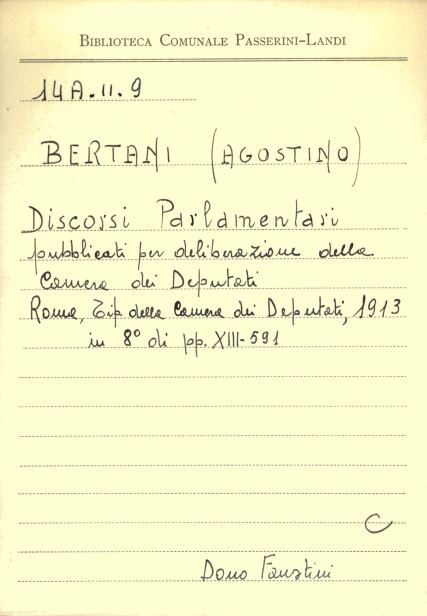 BIBLIOTECA COMUNALE PASSERINI-LANDI
14A.II.9
BERTANI (AGOSTINO)
Discorsi Parlamentari
pubblicati per deliberazione della
Camera dei Deputati
Roma, Tip. della Camera dei Deputati, 1913
in 8° di pp. XIII-591
C
Dono Faustini